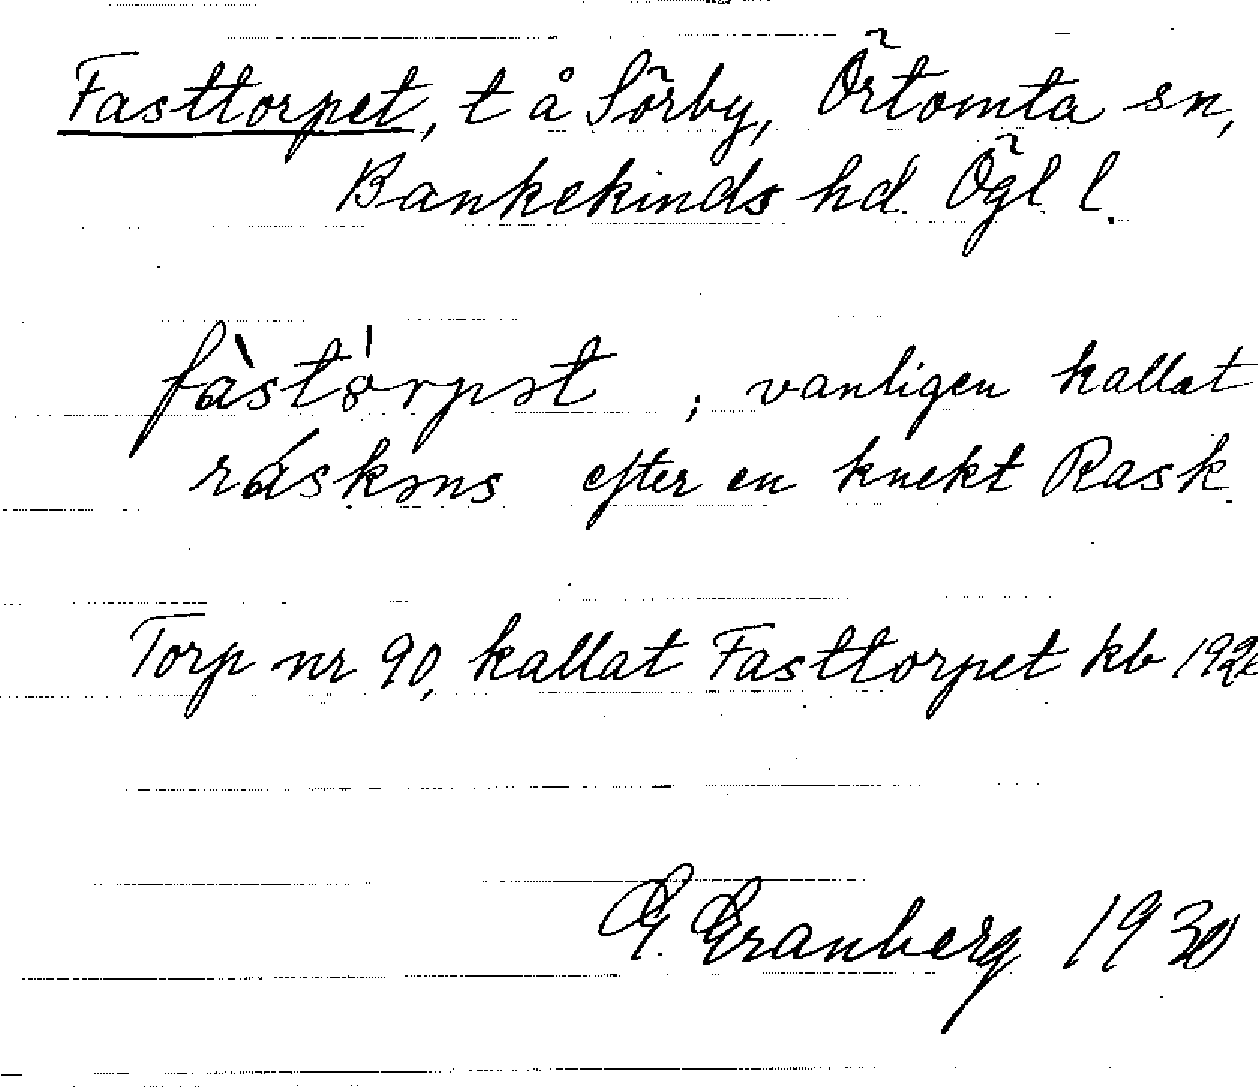 Fasttorpet, t å Sörby, Örtomta sn,
Bankekinds hd. Ögl l.
fàstórpət ; vanligen kallat
ráskəns efter en knekt Rask.
Torp nr 90, kallat Fasttorpet kb
G. Granberg 1930